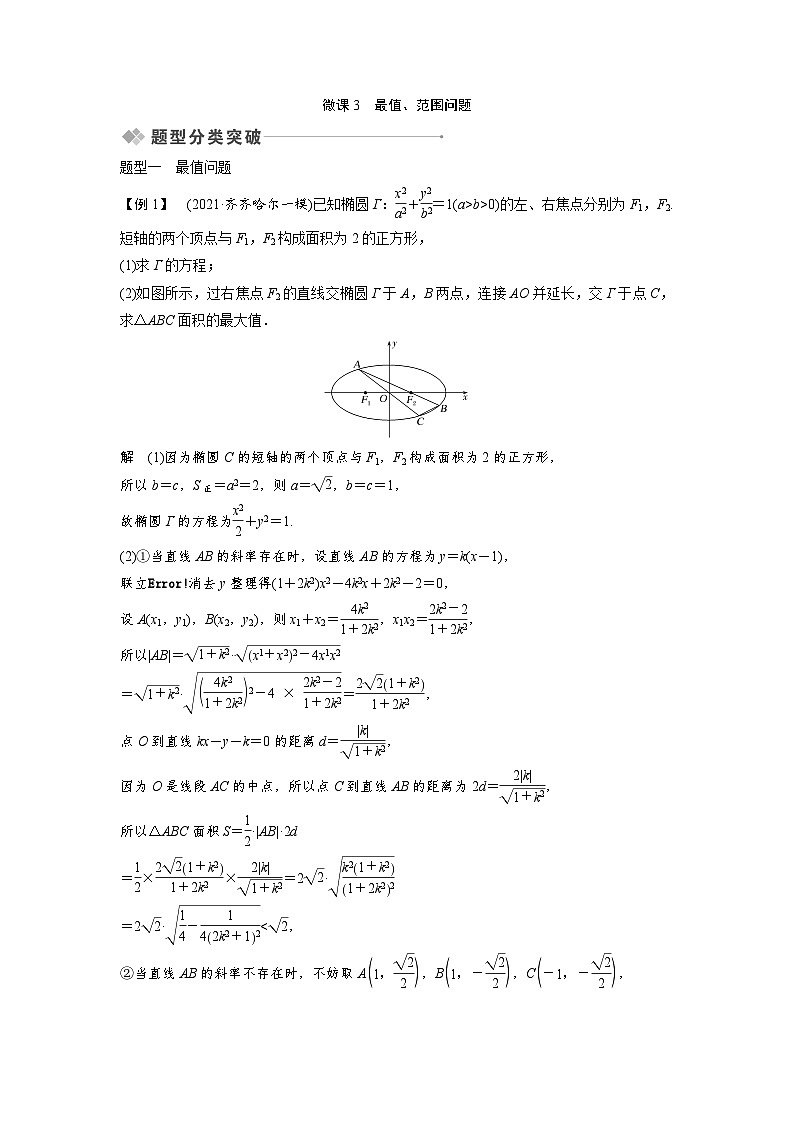 微课3　最值、范围问题
题型分类突破
题型一　最值问题
【例1】　(2021·齐齐哈尔一模)已知椭圆Γ：x²/a²＋y²/b²＝1(a>b>0)的左、右焦点分别为F₁，F₂.
短轴的两个顶点与F₁，F₂构成面积为2的正方形，
(1)求Γ的方程；
(2)如图所示，过右焦点F₂的直线交椭圆Γ于A，B两点，连接AO并延长，交Γ于点C，
求△ABC面积的最大值．
y
A
F₁ O F₂ x
B
C
解　(1)因为椭圆C的短轴的两个顶点与F₁，F₂构成面积为2的正方形，
所以b＝c，S正＝a²＝2，则a＝√2，b＝c＝1，
故椭圆Γ的方程为x²/2＋y²＝1.
(2)①当直线AB的斜率存在时，设直线AB的方程为y＝k(x－1)，
联立Error!消去y整理得(1＋2k²)x²－4k²x＋2k²－2＝0，
设A(x₁，y₁)，B(x₂，y₂)，则x₁＋x₂＝4k²/(1＋2k²)，x₁x₂＝(2k²－2)/(1＋2k²)，
所以|AB|＝√(1＋k²)·√((x1＋x2)2－4x1x2)
＝√(1＋k²)·√((4k²/(1＋2k²))2－4 × (2k²－2)/(1＋2k²))＝2√2(1＋k²)/(1＋2k²)，
点O到直线kx－y－k＝0的距离d＝|k|/√(1＋k²)，
因为O是线段AC的中点，所以点C到直线AB的距离为2d＝2|k|/√(1＋k²)，
所以△ABC面积S＝1/2·|AB|·2d
＝1/2×2√2(1＋k²)/(1＋2k²)×2|k|/√(1＋k²)＝2√2·√(k²(1＋k²)/(1＋2k²)²)
＝2√2·√(1/4－1/(4(2k²＋1)²))<√2，
②当直线AB的斜率不存在时，不妨取A(1，√2/2)，B(1，－√2/2)，C(－1，－√2/2)，